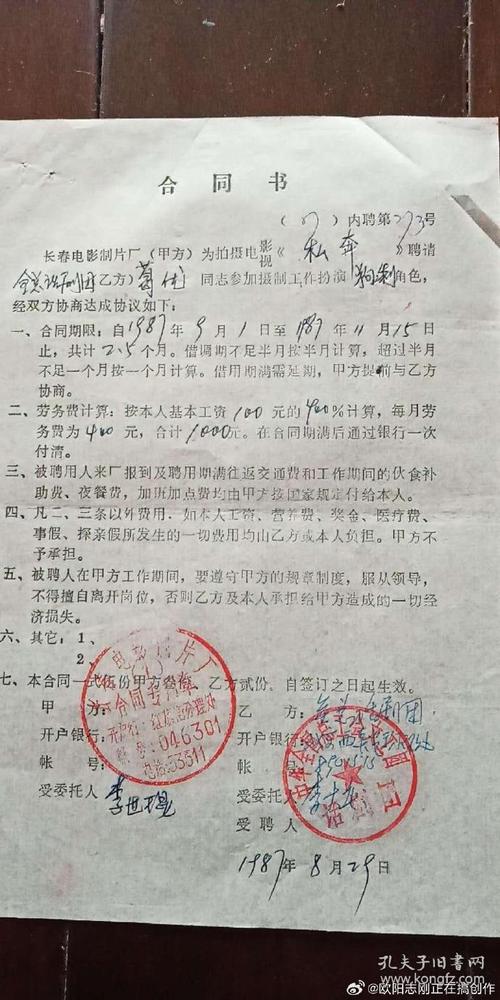 合同书
(87)内聘第273号
长春电影制片厂（甲方）为拍摄电影视《私奔》聘请
全总话剧团乙方）葛优 同志参加摄制工作扮演 角色，
经双方协商达成协议如下：
一、合同期限：自1987年9月1日至1987年11月15日
止，共计2.5个月。借调期不足半月按半月计算，超过半月
不足一个月按一个月计算。借用期满需延期，甲方提前与乙方
协商。
二、劳务费计算：按本人基本工资100元的400%计算，每月劳
务费为400元，合计1000元。在合同期满后通过银行一次
付清。
三、被聘用人来厂报到及聘用期满往返交通费和工作期间的伙食补
助费、夜餐费，加班加点费均由甲方按国家规定付给本人。
四、凡二、三条以外费用．如本人工资、营养费、奖金、医疗费、
事假、探亲假所发生的一切费用均由乙方或本人负担。甲方不
予承担。
五、被聘人在甲方工作期间，要遵守甲方的规章制度，服从领导，
不得擅自离开岗位，否则乙方及本人承担给甲方造成的一切经
济损失。
六、其它：1、
2、
七、本合同一式伍份甲方叁份，乙方贰份。自签订之日起生效。
甲方： 乙方：全总话剧团
开户银行： 开户银行：
帐号： 帐号：
受委托人 李世
受委托人 李
受聘人
1987年8月29日
电影制片厂
合同专用章
046301
电话:53311
话剧团
孔夫子旧书网
www.kongfz.com
@欧阳志刚正在搞创作